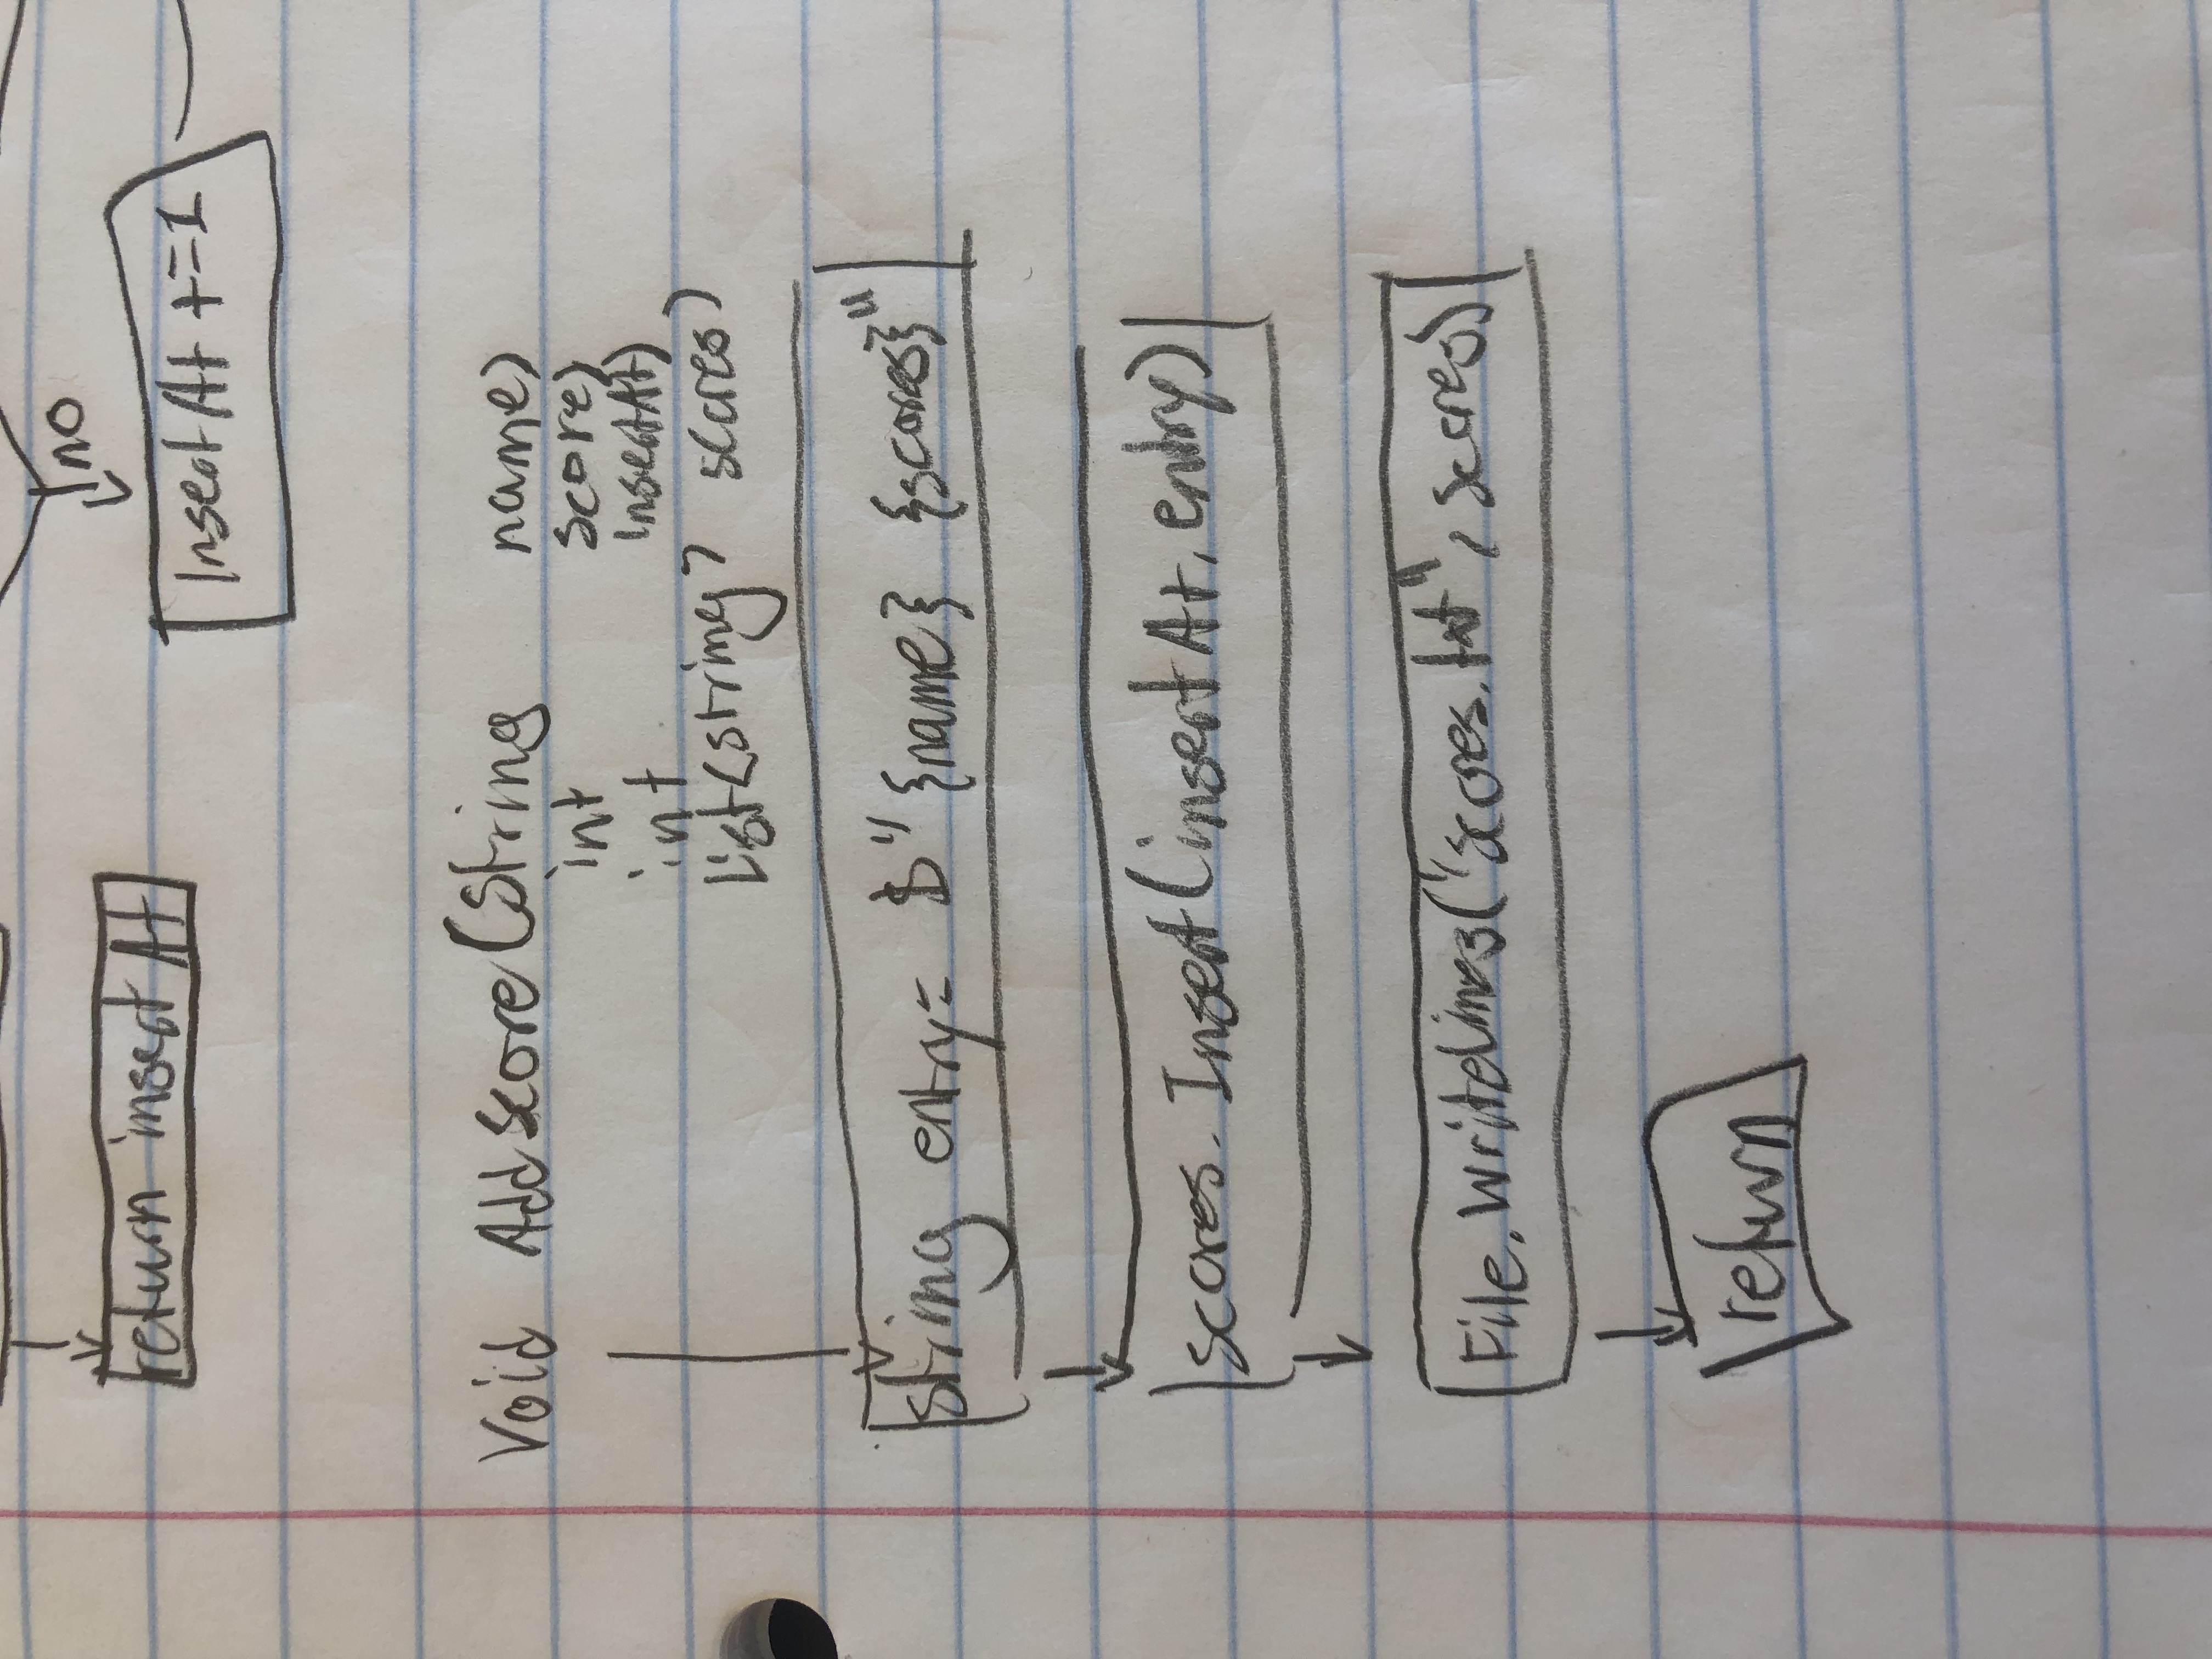 no
return insertAt
InsertAt +=1
Void AddScore(String name)
int score)
int InsertAt)
List<string> scores)
string entry= $"{name} {scores}"
scores.Insert(insertAt, entry)
File.WriteLines("scores.txt", scores)
return